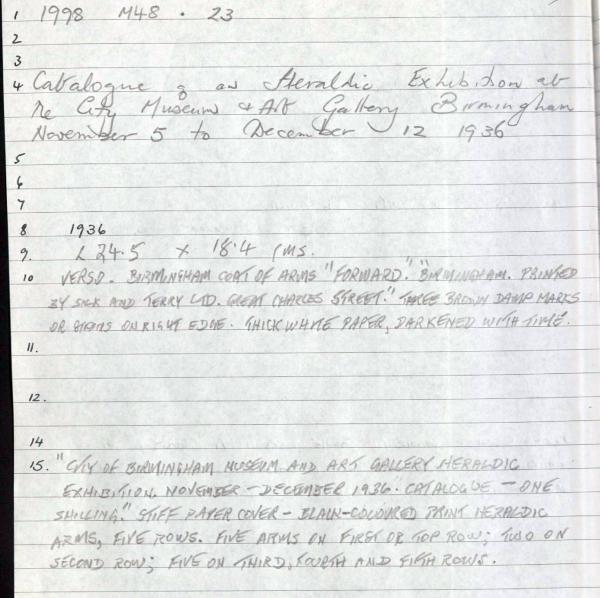 1 1998 M48 . 23
2
3
4 Catalogue of an Heraldic Exhibition at
the City Museum & Art Gallery Birmingham
November 5 to December 12 1936
5
6
7
8 1936
9. L 24.5 x 18.4 cms.
10 VERSO. BIRMINGHAM COAT OF ARMS "FORWARD". "BIRMINGHAM. PRINTED
BY SILK AND TERRY LTD. GREAT CHARLES STREET." THREE BROWN DAMP MARKS
OR STAINS ON RIGHT EDGE. THICK WHITE PAPER, DARKENED WITH TIME.
11.
12.
14
15. "CITY OF BIRMINGHAM MUSEUM AND ART GALLERY HERALDIC
EXHIBITION. NOVEMBER - DECEMBER 1936. CATALOGUE - ONE
SHILLING." STIFF PAPER COVER - PRINT HERALDIC
ARMS, FIVE ROWS. FIVE ARMS ON FIRST OR TOP ROW; TWO ON
SECOND ROW; FIVE ON THIRD, FOURTH AND FIFTH ROWS.